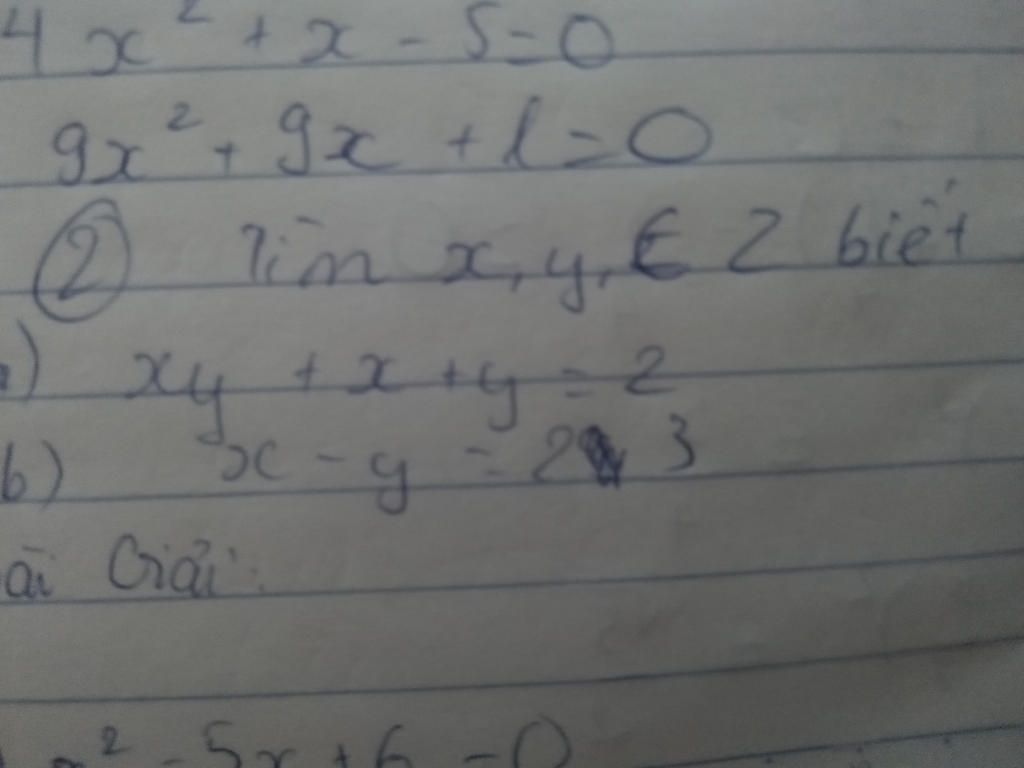 4x² + x - 5 = 0
9x² + 9x + 1 = 0
② Tìm x, y, ∈ Z biết
a) xy + x + y = 2
b) x - y = 2 3
ài Giải:
x² - 5x + 6 = 0